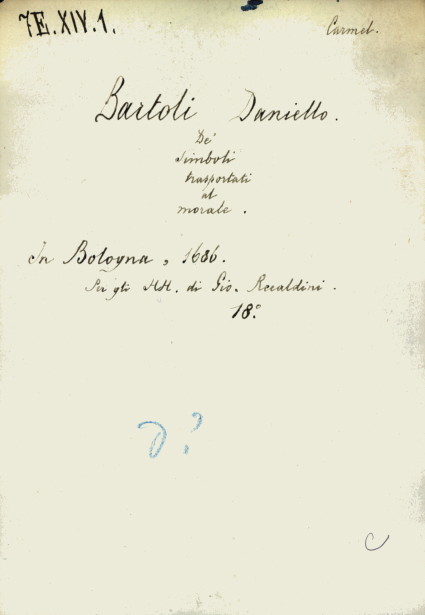 7E.XIV.1.
Carmel.
Bartoli Daniello.
De'
simboli
trasportati
al
morale.
In Bologna, 1686.
Per gli HH. di Gio. Recaldini.
18.º
D?
C